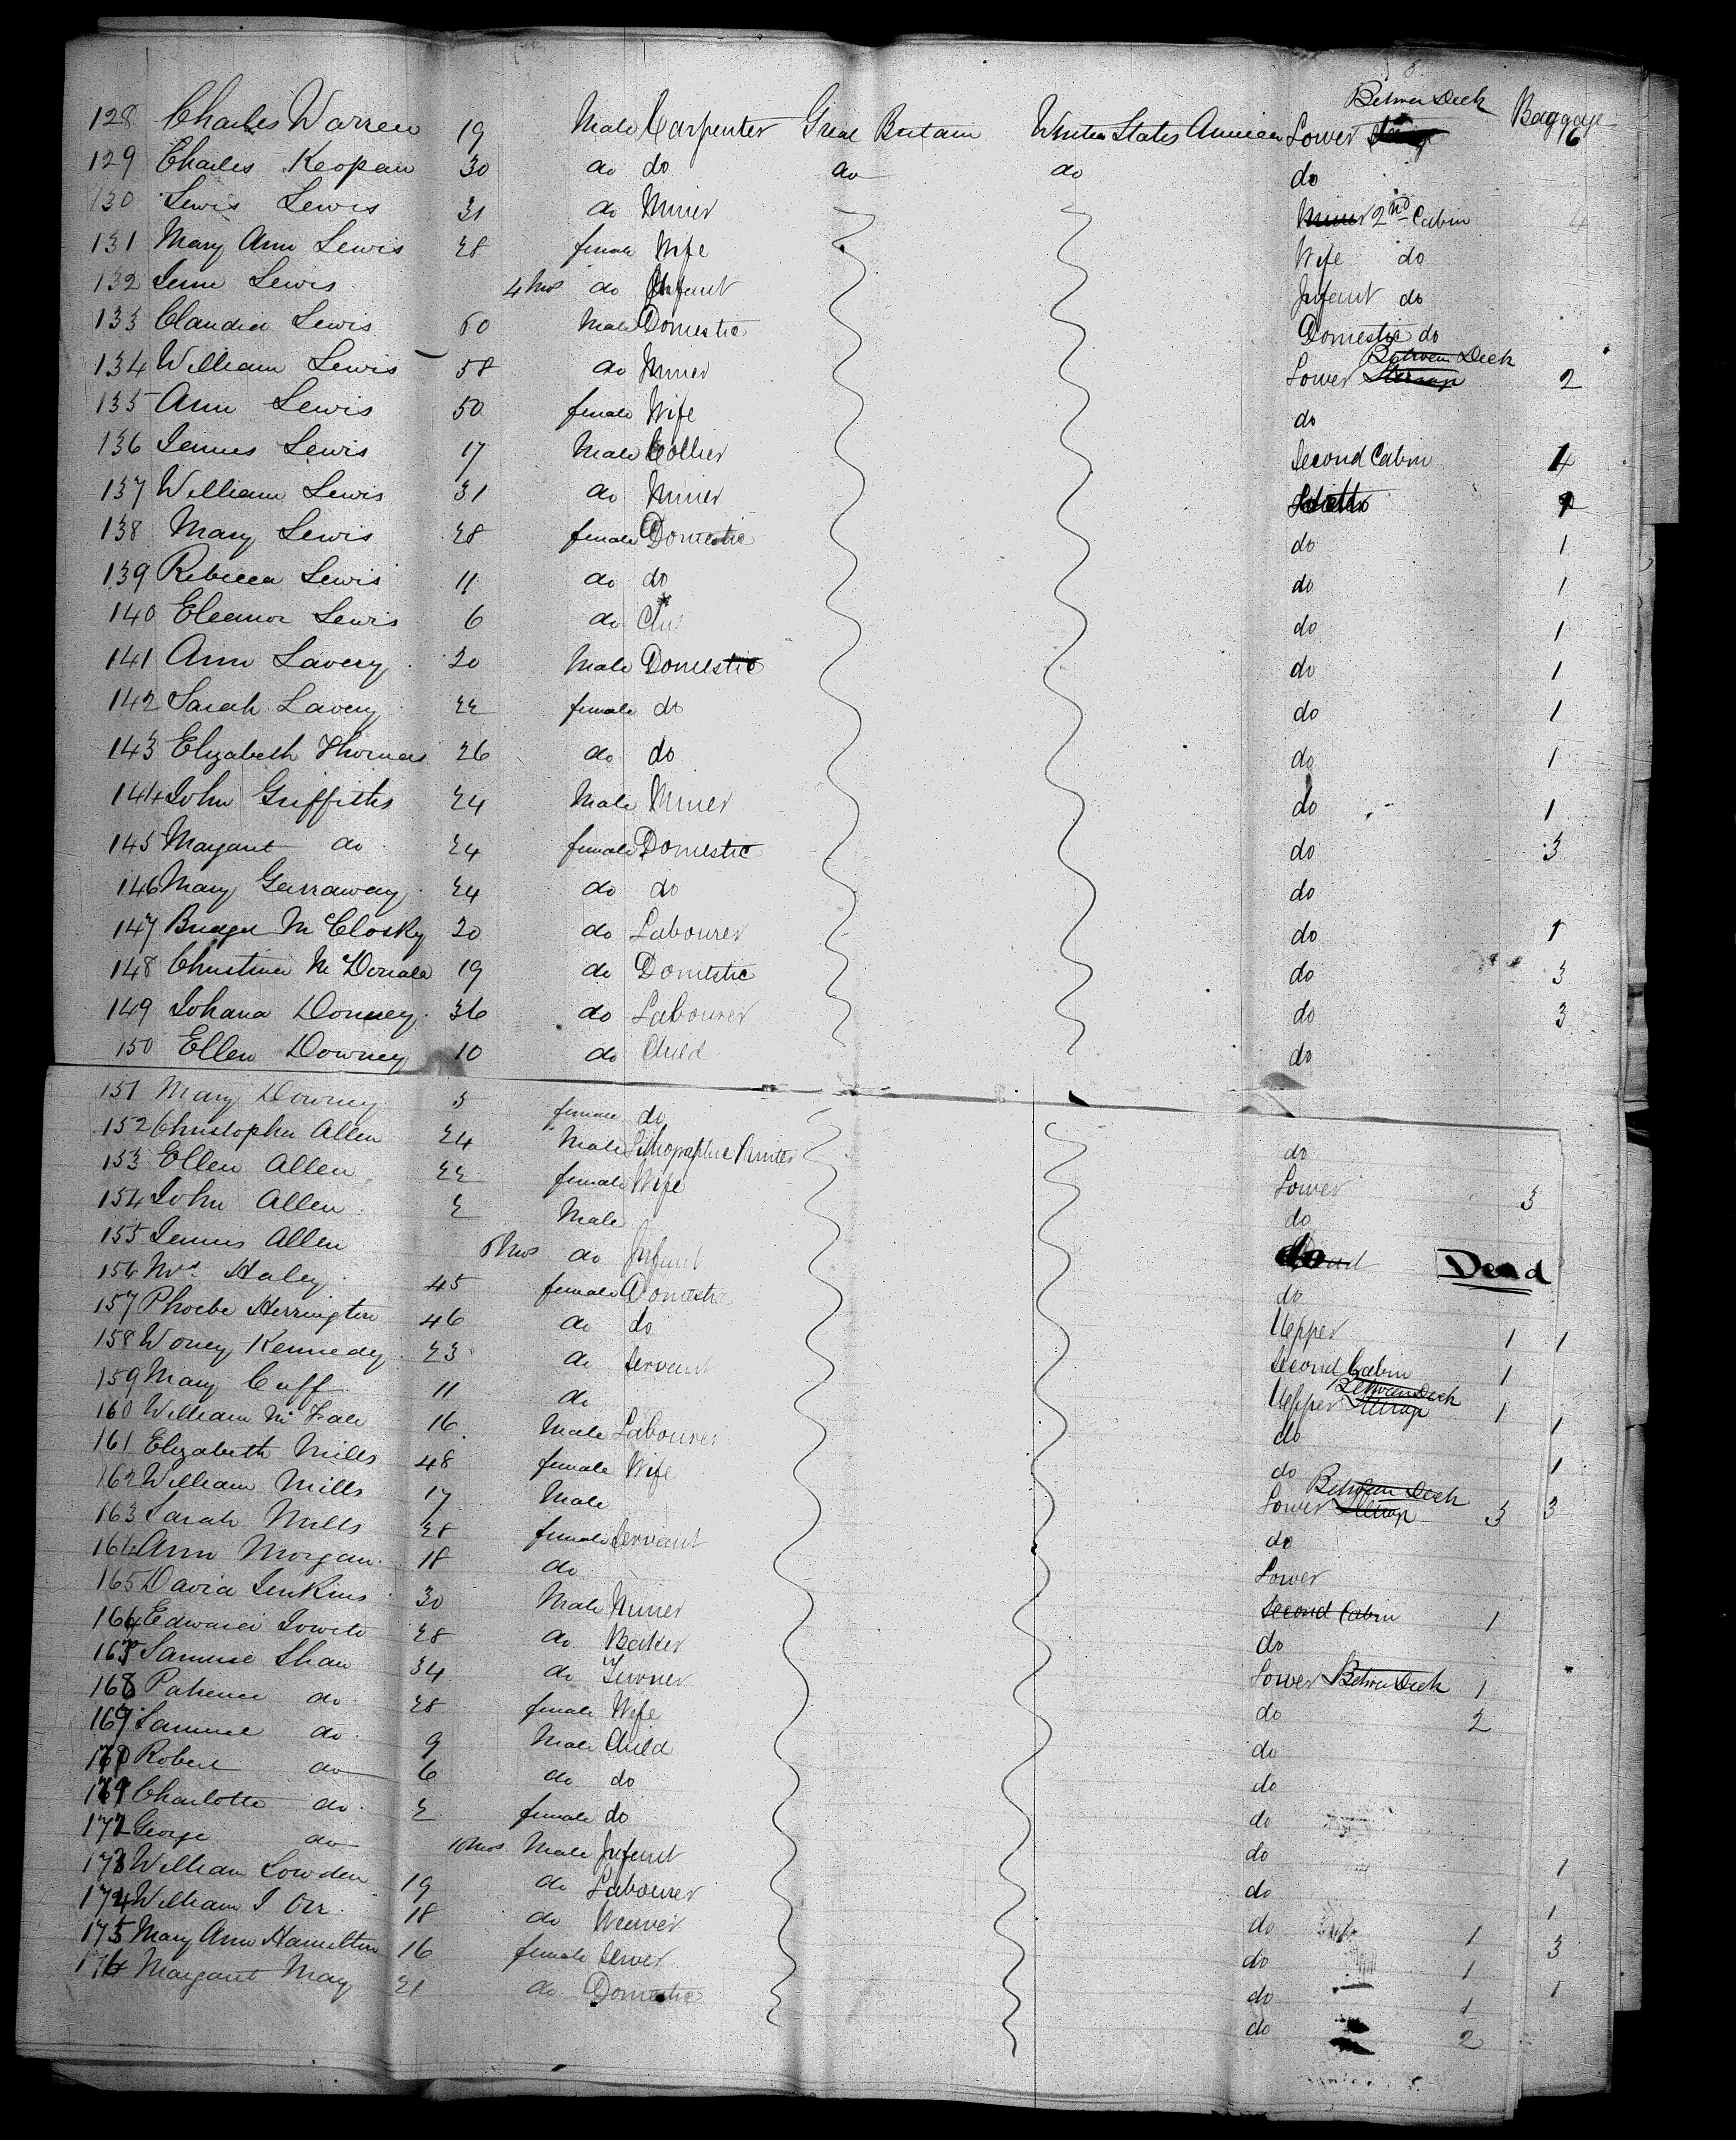 Between Deck Baggage
128 Charles Warren 19 Male Carpenter Great Britain United States America Lower 6
129 Charles Keopan 30 do do do do do
130 Lewis Lewis 31 do Miner 2nd Cabin 4
131 Mary Ann Lewis 28 female Wife Wife do
132 Lewis 4 Mos do Infant Infant do
133 Claudia Lewis 60 Male Domestic Domestic do
134 William Lewis 58 do Miner Lower Steerage Between Deck 2
135 Ann Lewis 50 female Wife do
136 Lewis 17 Male Collier Second Cabin 1
137 William Lewis 31 do Miner
138 Mary Lewis 28 female Domestic do 1
139 Rebecca Lewis 11 do do do 1
140 Eleanor Lewis 6 do do 1
141 Ann Lavery 20 Male Domestic do 1
142 Sarah Lavery 22 female do do 1
143 Elizabeth Thomas 26 do do do 1
144 John Griffiths 24 Male Miner do 1
145 Margaret do 24 female Domestic do 3
146 Mary Garraway 24 do do do
147 Bridget McClosky 20 do Labourer do 1
148 Christina McDonald 19 do Domestic do 3
149 Johana Downey 36 do Labourer do 3
150 Ellen Downey 10 do Child do
151 Mary Downey 5 female do do
152 Christopher Allen 24 Male Lithographic Printer Lower 3
153 Ellen Allen 22 female Wife do
154 John Allen 2 Male
155 Allen Mos do Infant Dead
156 Mrs Haley 45 female Domestic do
157 Phoebe Herrington 46 do do Upper 1 1
158 Kennedy 23 do Servant Second Cabin 1
159 Mary Cuff 11 do Upper Steerage Between Deck 1
160 William 16 Male Labourer do 1
161 Elizabeth Mills 48 female Wife do 1
162 William Mills 17 Male Lower Steerage Between Deck 3 3
163 Sarah Mills 28 female Servant do
164 Ann Morgan 18 do Lower
165 David Jenkins 30 Male Miner Second Cabin 1
166 Edward 28 do Baker do
167 Samuel Shaw 34 do Turner Lower Between Deck 1
168 Patience do 28 female Wife do 2
169 Samuel do 9 Male Child do
170 Robert do 6 do do do
171 Charlotte do 2 female do do
172 George do 10 Mos Male Infant do
173 William Lowden 19 do Labourer do 1
174 William J Orr 18 do Weaver do 1 1
175 Mary Ann Hamilton 16 female Sewer do 1 3
176 Margaret May 21 do Domestic do 1 1
do 2